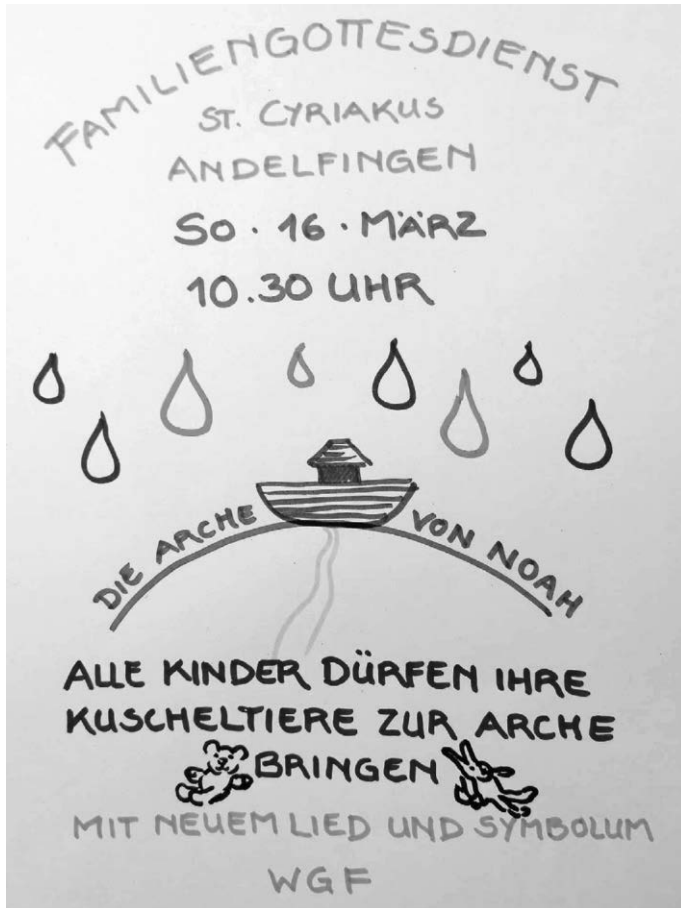 FAMILIENGOTTESDIENST
ST. CYRIAKUS
ANDELFINGEN
SO · 16 · MÄRZ
10.30 UHR
DIE ARCHE VON NOAH
ALLE KINDER DÜRFEN IHRE
KUSCHELTIERE ZUR ARCHE
BRINGEN
MIT NEUEM LIED UND SYMBOLUM
WGF